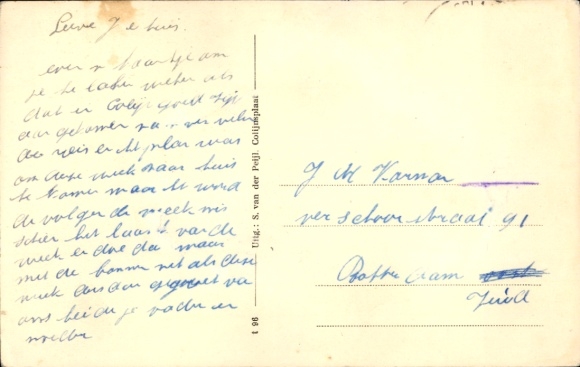 Lieve J e huis
even n kaartje om
je te laten weten als
dat er Colijn goed zijt
aan gekomen na n ver velen
de reis er ht plan was
om dese week naar huis
te komen maar ht word
de volgende week mis
schien het laas t van de
week er doe da maar
met de bonnen net als dese
week dus dan gegroet va
ons beide je vader en
moeder
Uitg.: S. van der Peijl, Colijnsplaat
t 96
J M Karman
ver schoor straat 91
Rotterdam
Zuid